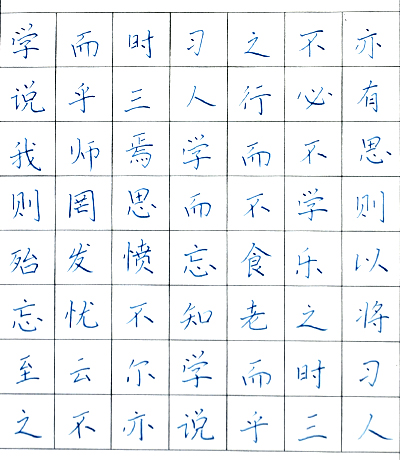 学而时习之不亦
说乎三人行必有
我师焉学而不思
则罔思而不学则
殆发愤忘食乐以
忘忧不知老之将
至云尔学而时习
之不亦说乎三人